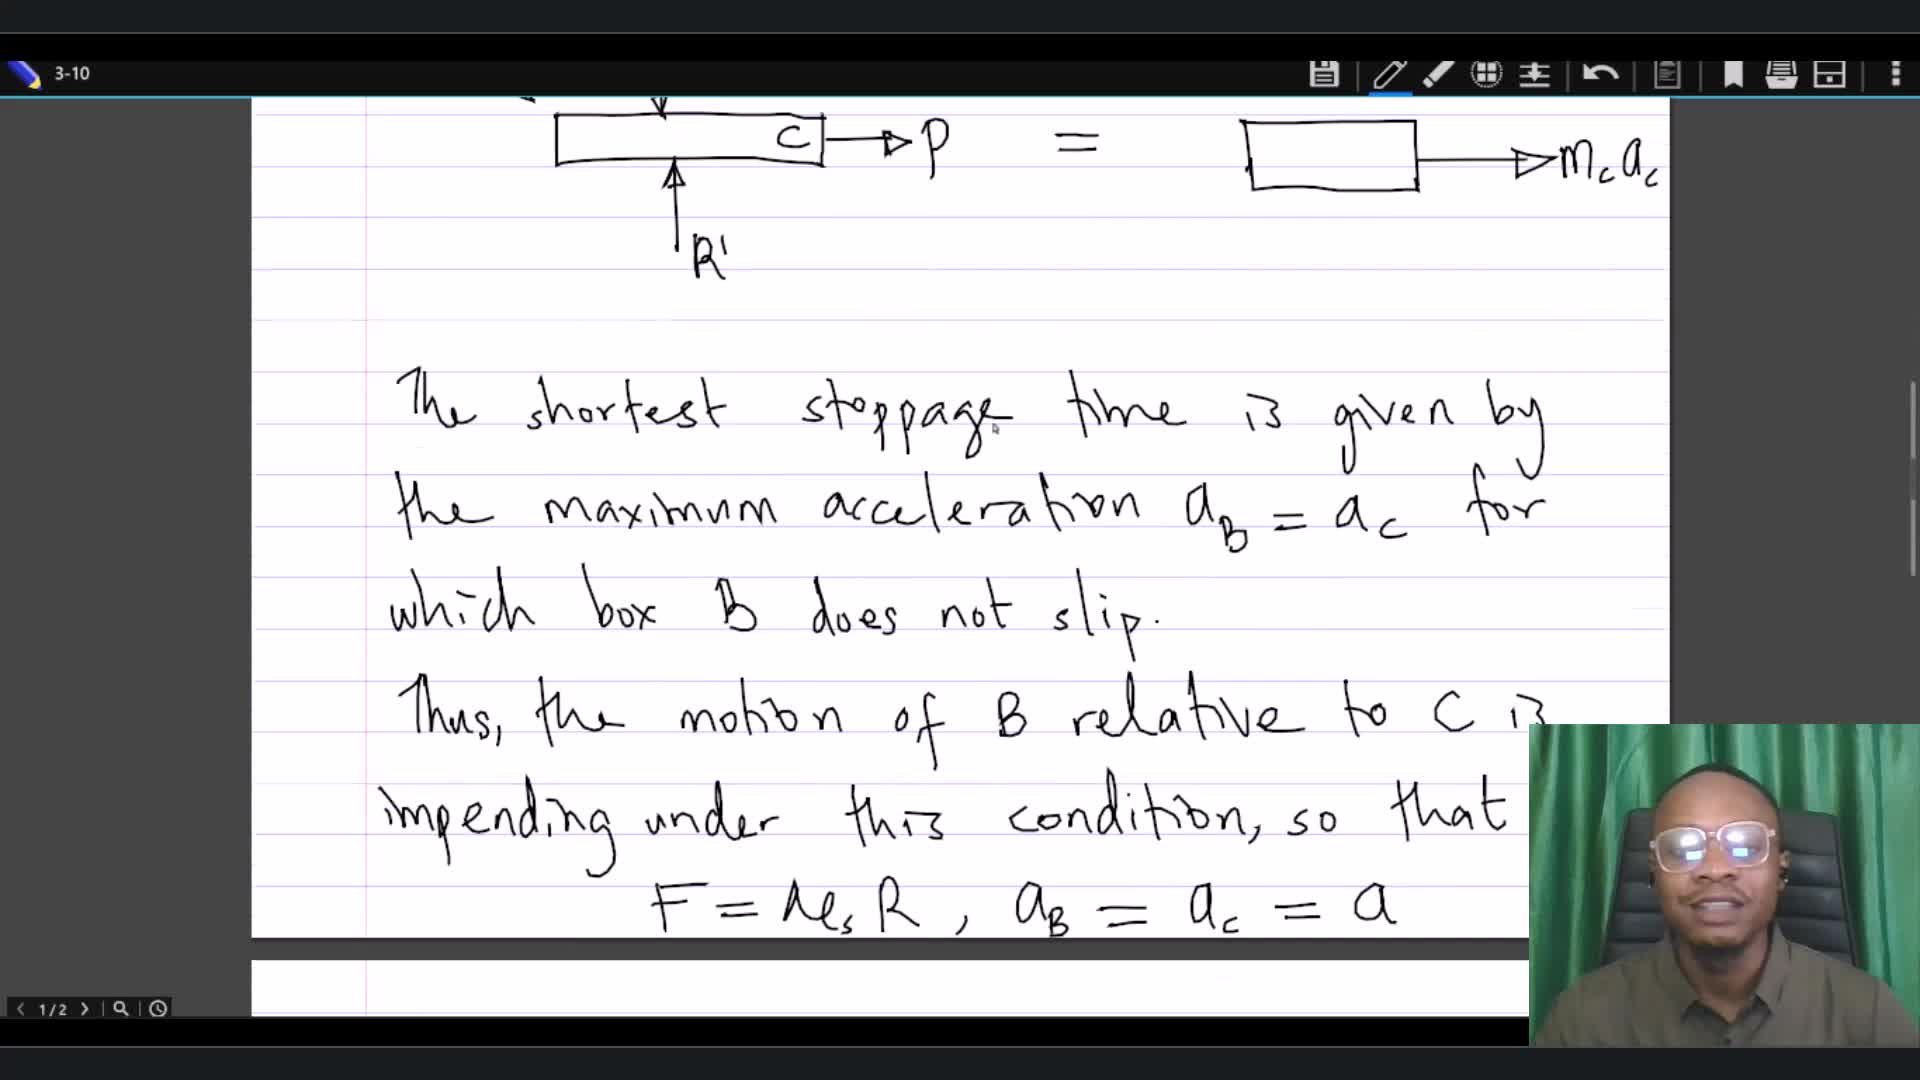 3-10
C P = m_c a_c
R'
The shortest stoppage time is given by
the maximum acceleration a_B = a_C for
which box B does not slip.
Thus, the motion of B relative to C is
impending under this condition, so that
F = μ_s R, a_B = a_C = a
1/2